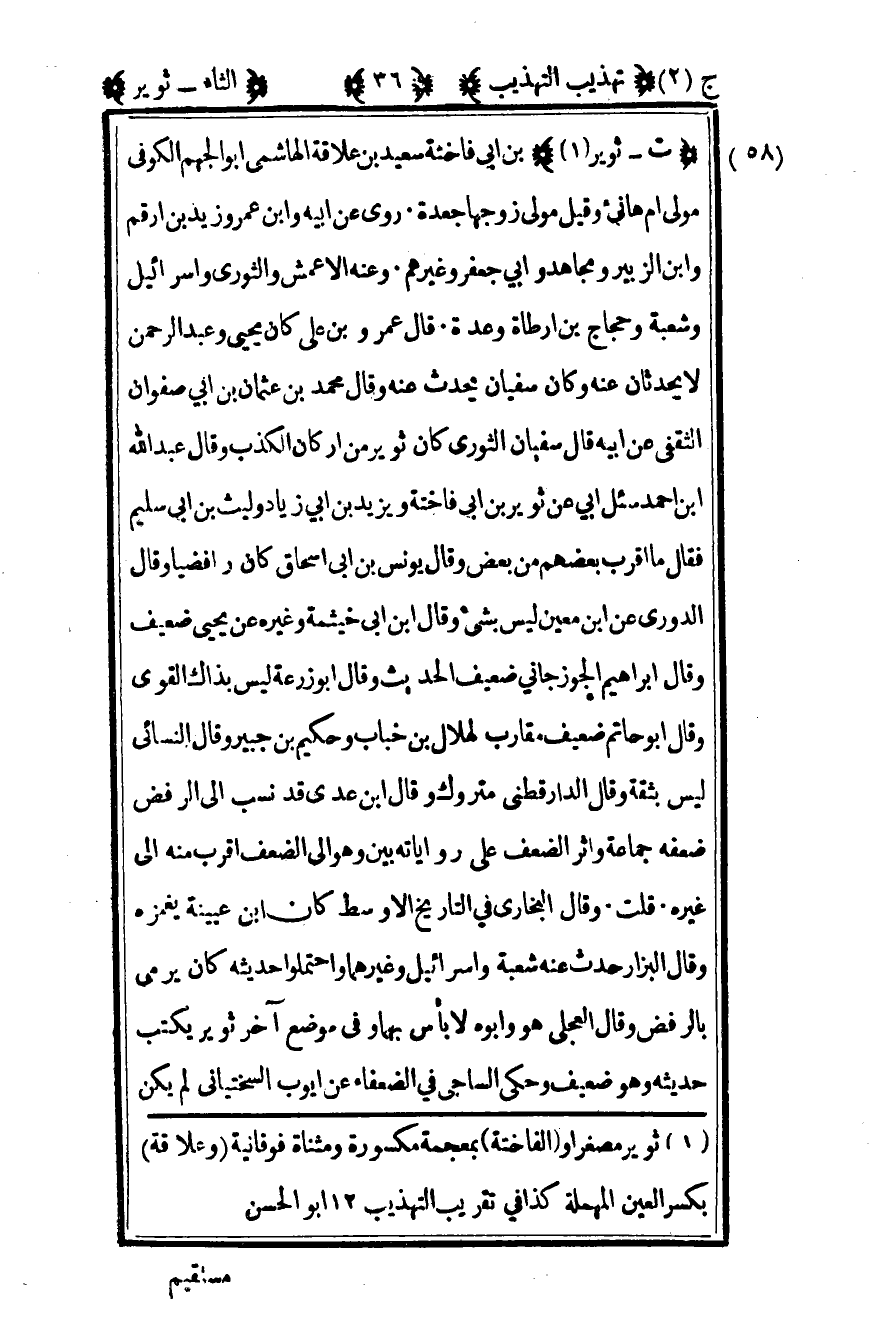 ج (٢) ﴿ تهذيب التهذيب ﴾ ﴿ ٣٦ ﴾ ﴿ الثاء ـ ثوير ﴾
(٥٨) ﴿ ت ـ ثوير (١) ﴾ بن ابي فاختة سعيد بن علاقة الهاشمى ابو الجهم الكوفى
مولى ام هانئ وقيل مولى زوجها جعدة · روى عن ابيه وابن عمر وزيد بن ارقم
وابن الزبير ومجاهد وابي جعفر وغيرهم · وعنه الاعمش والثورى واسرائيل
وشعبة وحجاج بن ارطاة وعدة · قال عمرو بن على كان يحيى وعبد الرحمن
لا يحدثان عنه وكان سفيان يحدث عنه وقال محمد بن عثمان بن ابي صفوان
الثقفى عن ابيه قال سفيان الثورى كان ثوير من اركان الكذب وقال عبد الله
ابن احمد سئل ابي عن ثوير بن ابي فاختة ويزيد بن ابي زياد وليث بن ابى سليم
فقال ما اقرب بعضهم من بعض وقال يونس بن ابى اسحاق كان رافضيا وقال
الدورى عن ابن معين ليس بشئ وقال ابن ابى خيثمة وغيره عن يحيى ضعيف
وقال ابراهيم الجوزجاني ضعيف الحديث وقال ابوزرعة ليس بذاك القوى
وقال ابو حاتم ضعيف مقارب لهلال بن خباب وحكيم بن جبير وقال النسائى
ليس بثقة وقال الدارقطنى متروك وقال ابن عدى قد نسب الى الرفض
ضعفه جماعة واثر الضعف على رواياته بين وهو الى الضعف اقرب منه الى
غيره · قلت · وقال البخارى في التاريخ الاوسط كان ابن عيينة يغمزه
وقال البزار حدث عنه شعبة واسرائيل وغيرهما واحتملوا حديثه كان يرمى
بالرفض وقال العجلى هو وابوه لا بأس بهما وفى موضع آخر ثوير يكتب
حديثه وهو ضعيف وحكى الساجى في الضعفاء عن ايوب السختيانى لم يكن
(١) ثوير مصغرا و(الفاختة) بمعجمة مكسورة ومثناة فوقانية (وعلاقة)
بكسر العين المهملة كذا في تقريب التهذيب ١٢ ابو الحسن
مستقيم